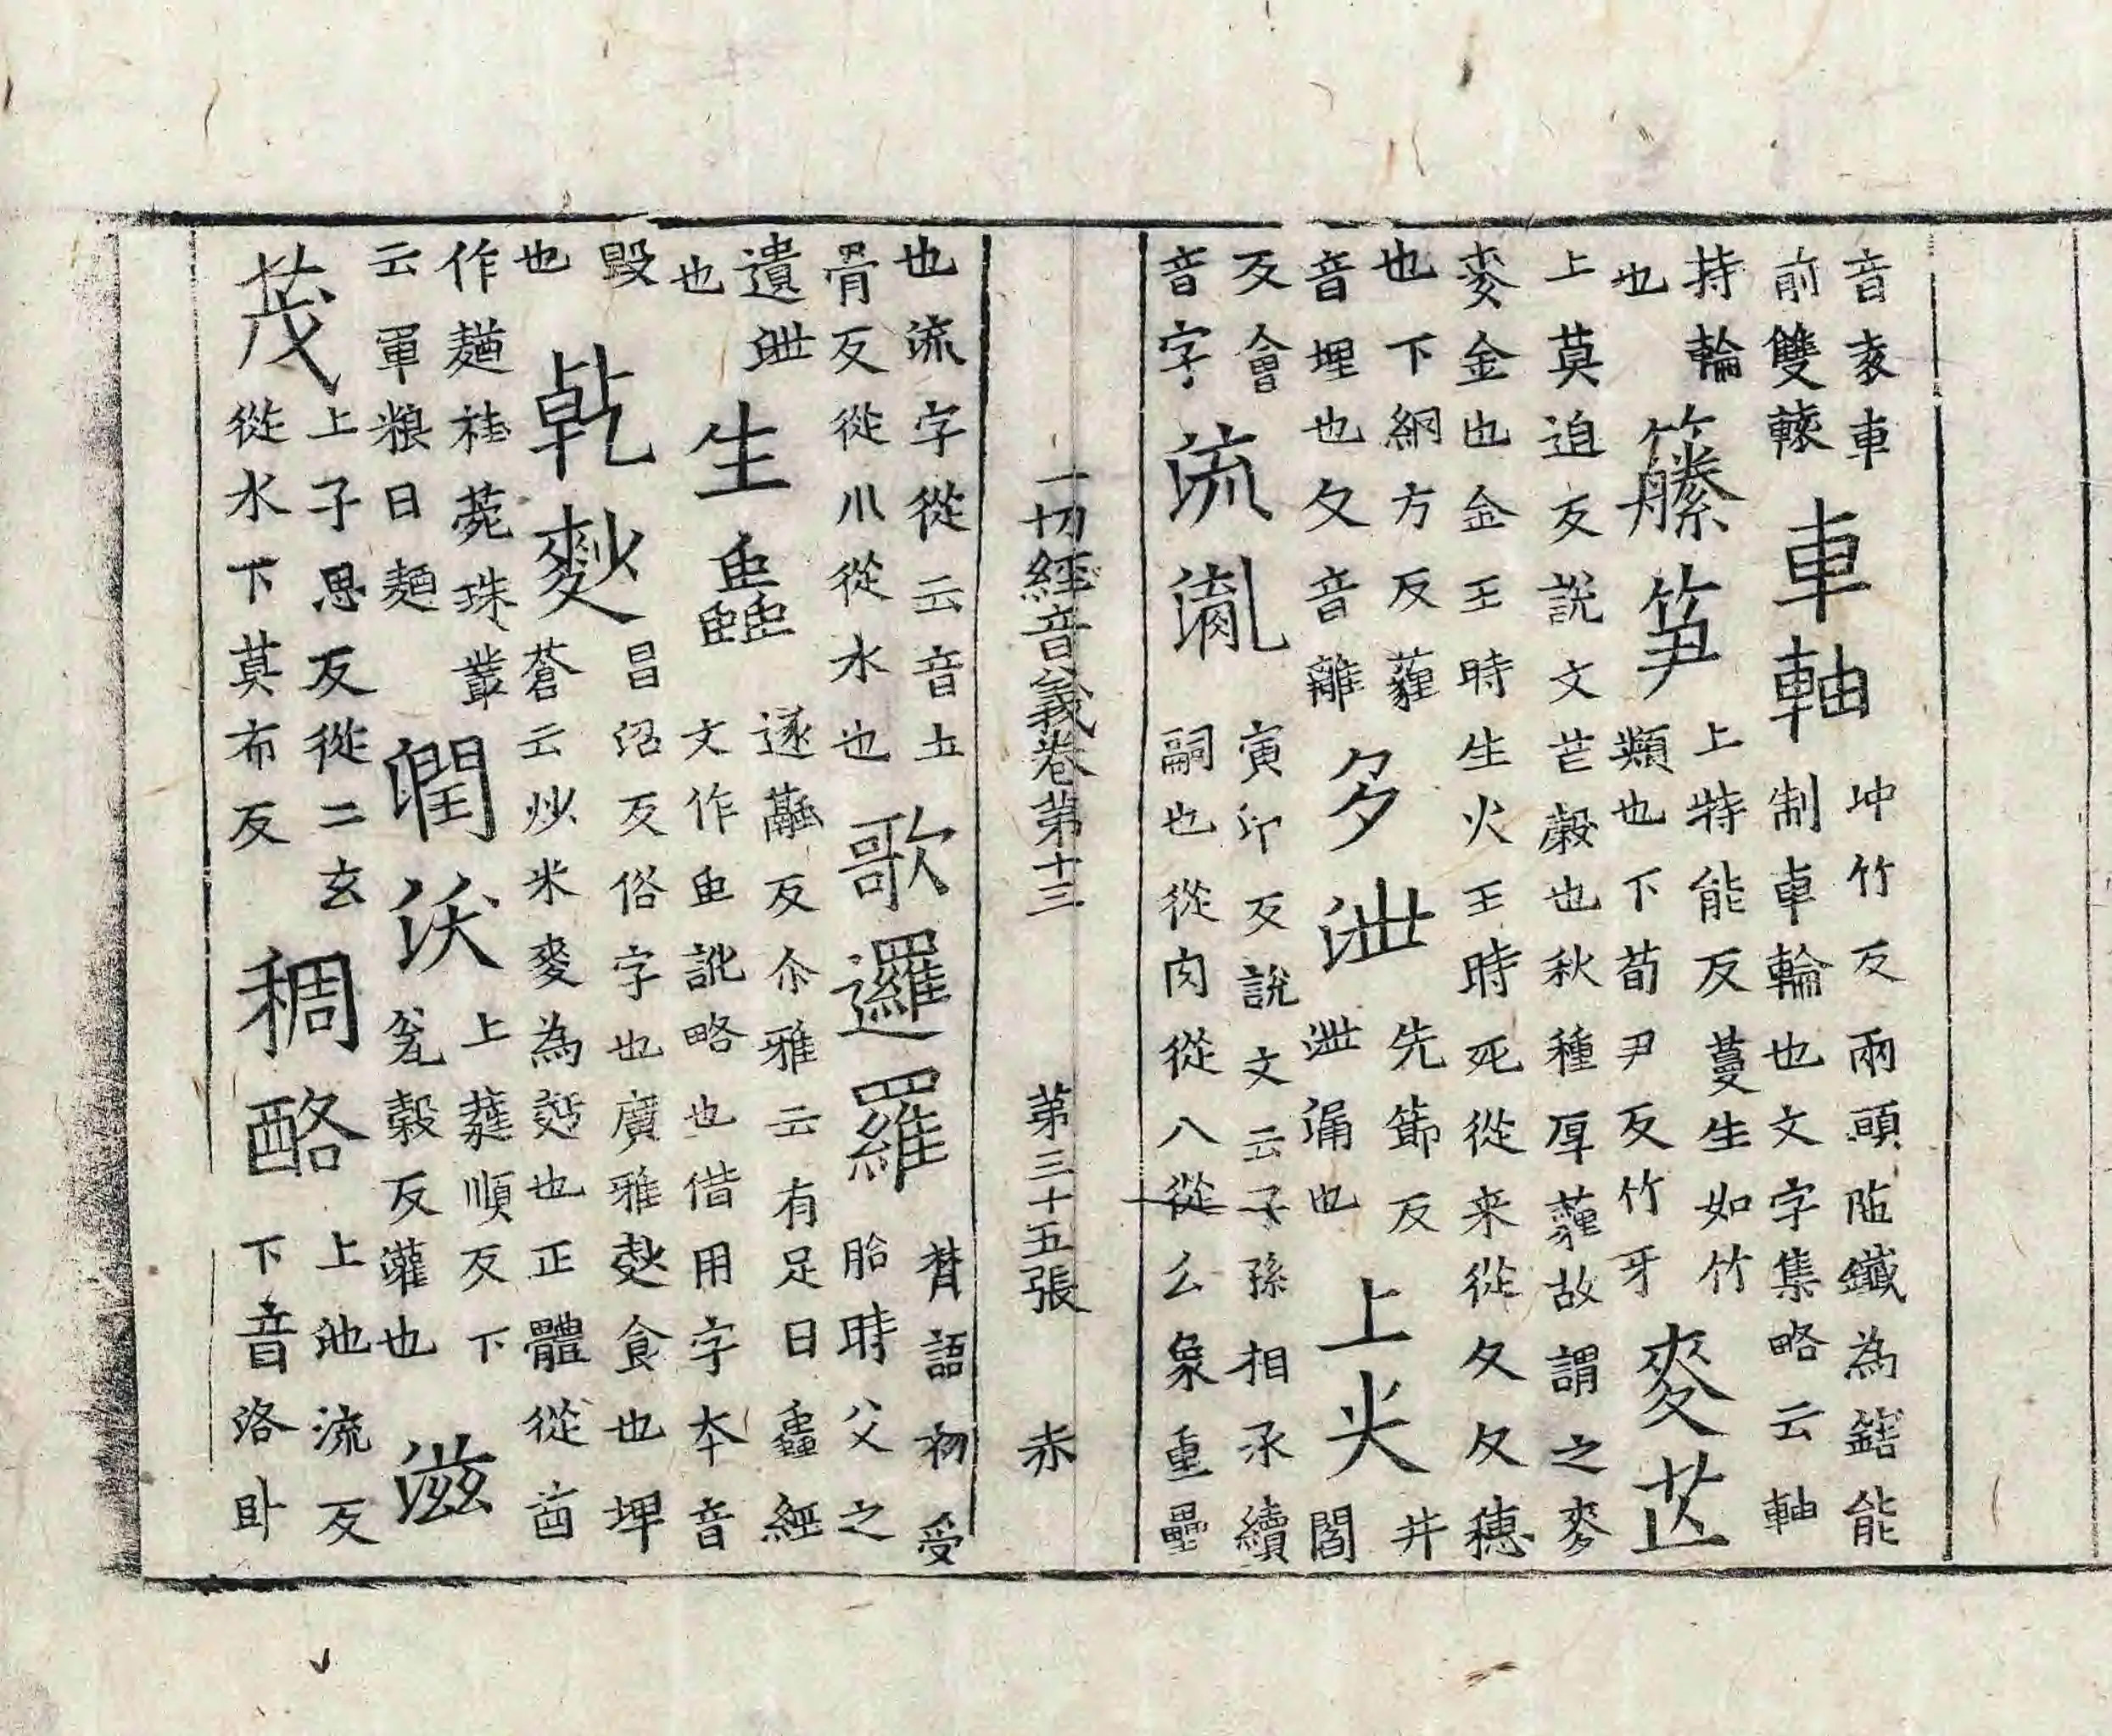 音袁車
前雙轅
車軸
冲竹反兩頭陁鐵為鎋能
制車輪也文字集略云軸
持輪
也
籐笋
上特能反蔓生如竹
類也下荀尹反竹牙
麥芒
上莫迫反說文芒穀也秋種厚薶故謂之麥
麥金也金王時生火王時死從来從夊夊穗
也下網方反薶
音埋也夊音雖
多泄
先節反
泄漏也
上尖
井
閻
反會
音字
流胤
寅印反說文云子孫相承續
嗣也從肉從八從幺象重壘
一切經音義卷第十三 第三十五張 赤
也流字從㐬音土
骨反從川從水也
歌邏羅
梵語初受
胎時父之
遺泄
也
生蟲
逐融反尒雅云有足曰蟲經
文作虫訛略也借用字本音
毀
也
乾麨
昌沼反俗字也廣雅麨食也埤
蒼云炒米麥為麨也正體從酋
作䴬桂菀珠叢
云軍粮曰䴬
潤沃
上蕤順反下
瓮穀反灌也
滋
茂
上子思反從二玄
從水下莫布反
稠酪
上池流反
下音洛卧